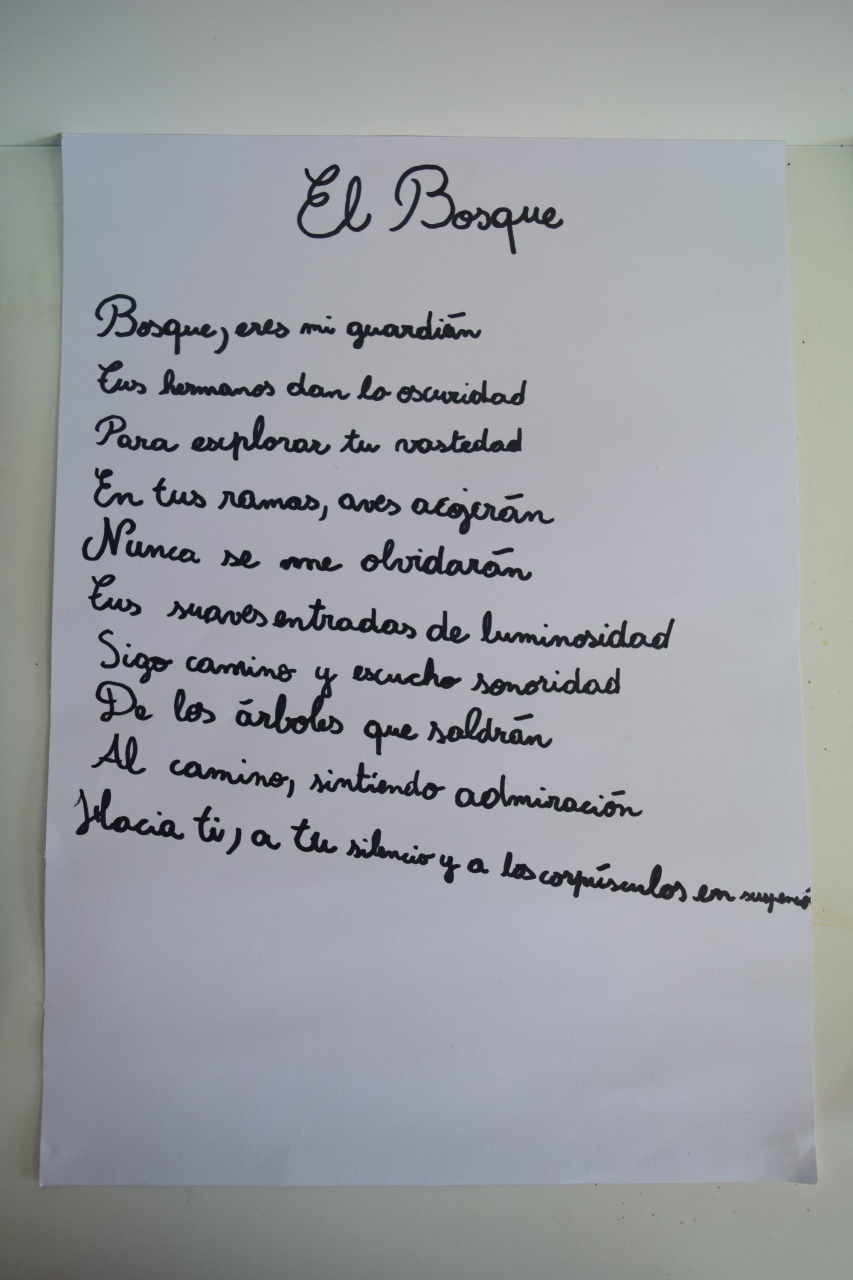 El Bosque
Bosque, eres mi guardián
Tus hermanos dan la oscuridad
Para explorar tu vastedad
En tus ramas, aves acojerán
Nunca se me olvidarán
Tus suaves entradas de luminosidad
Sigo camino y escucho sonoridad
De los árboles que saldrán
Al camino, sintiendo admiración
Hacia ti, a tu silencio y a los corpúsculos en